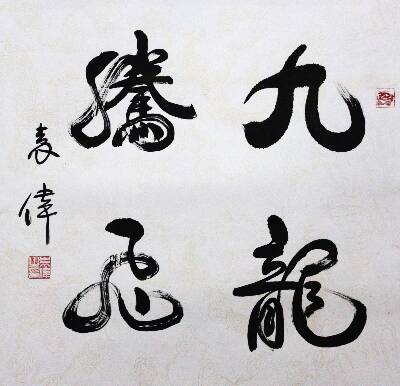 九龍
騰飛
袁偉